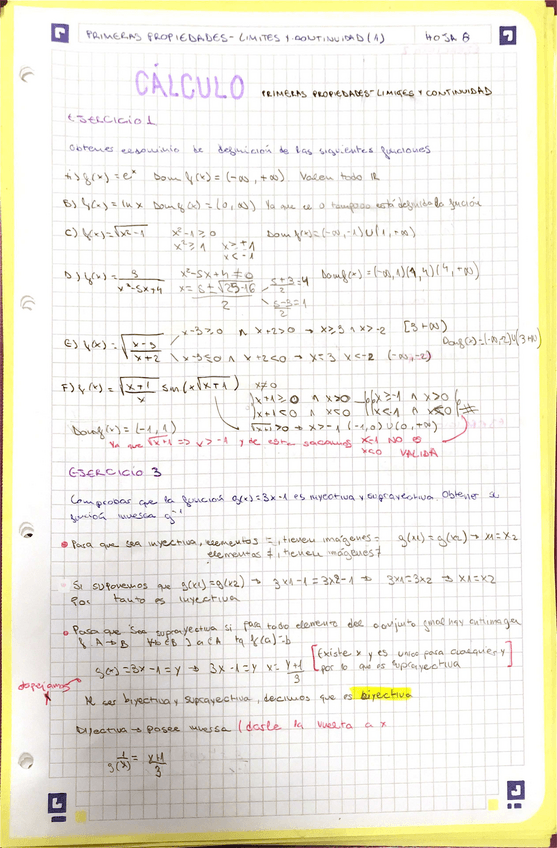 PRIMERAS PROPIEDADES - LIMITES Y CONTINUIDAD (1) HOJA 6
CÁLCULO PRIMERAS PROPIEDADES - LIMITES Y CONTINUIDAD
EJERCICIO 1
Obtener el dominio de definición de las siguientes funciones
A) f(x) = e^x Dom f(x) = (-∞, +∞). Valen todo ℝ
B) f(x) = ln x Dom f(x) = (0, ∞) Ya que el 0 tampoco está definida la función
C) f(x) = √x²-1 x²-1 ≥ 0 Dom f(x) = (-∞, -1) ∪ (1, +∞)
x² ≥ 1 x > +1
x < -1
D) f(x) = 3 / x²-5x+4 x²-5x+4 ≠ 0 5+3/2 = 4 Dom f(x) = (-∞, 1)(1, 4)(4, +∞)
x = 5 ± √25-16 / 2 5-3/2 = 1
E) f(x) = √x-3/x+2 x-3 ≥ 0 ∧ x+2 > 0 → x ≥ 3 ∧ x > -2 [3 +∞)
Dom f(x) = (-∞, -2) ∪ (3 +∞)
x-3 ≤ 0 ∧ x+2 < 0 → x = 3 x < -2 (-∞, -2)
F) f(x) = √x+1/x sin(x√x+1) x ≠ 0
x+1 ≥ 0 ∧ x > 0 x ≥ -1 ∧ x > 0
x+1 ≤ 0 ∧ x < 0 x < -1 ∧ x < 0
√x+1 > 0 → x > -1 (-1, 0) ∪ (0, +∞)
Dom f(x) = (-1, 1)
Ya que √x+1 => x > -1, y de esta sacamos x < -1 NO ES
x < 0 VALIDA
EJERCICIO 3
Comprobar que la función g(x) = 3x-1 es inyectiva y suprayectiva. Obtener a
función inversa g⁻¹
• Para que sea inyectiva, elementos =, tienen imágenes = g(x1) = g(x2) → x1 = x2
elementos ≠, tienen imágenes ≠
Si suponemos que g(x1) = g(x2) → 3x1-1 = 3x2-1 → 3x1 = 3x2 → x1 = x2
Por tanto es inyectiva
• Para que sea suprayectiva si para todo elemento del conjunto final hay antimagen
f A → B ∀b ∈ B ∃ a ∈ A tq f(a) = b
[Existe x y es único para cualquier y
g(x) = 3x-1 = y → 3x-1 = y x = y+1/3 por lo que es suprayectiva]
despejamos x
Al ser inyectiva y suprayectiva, decimos que es biyectiva
Biyectiva → posee inversa (darle la vuelta a x